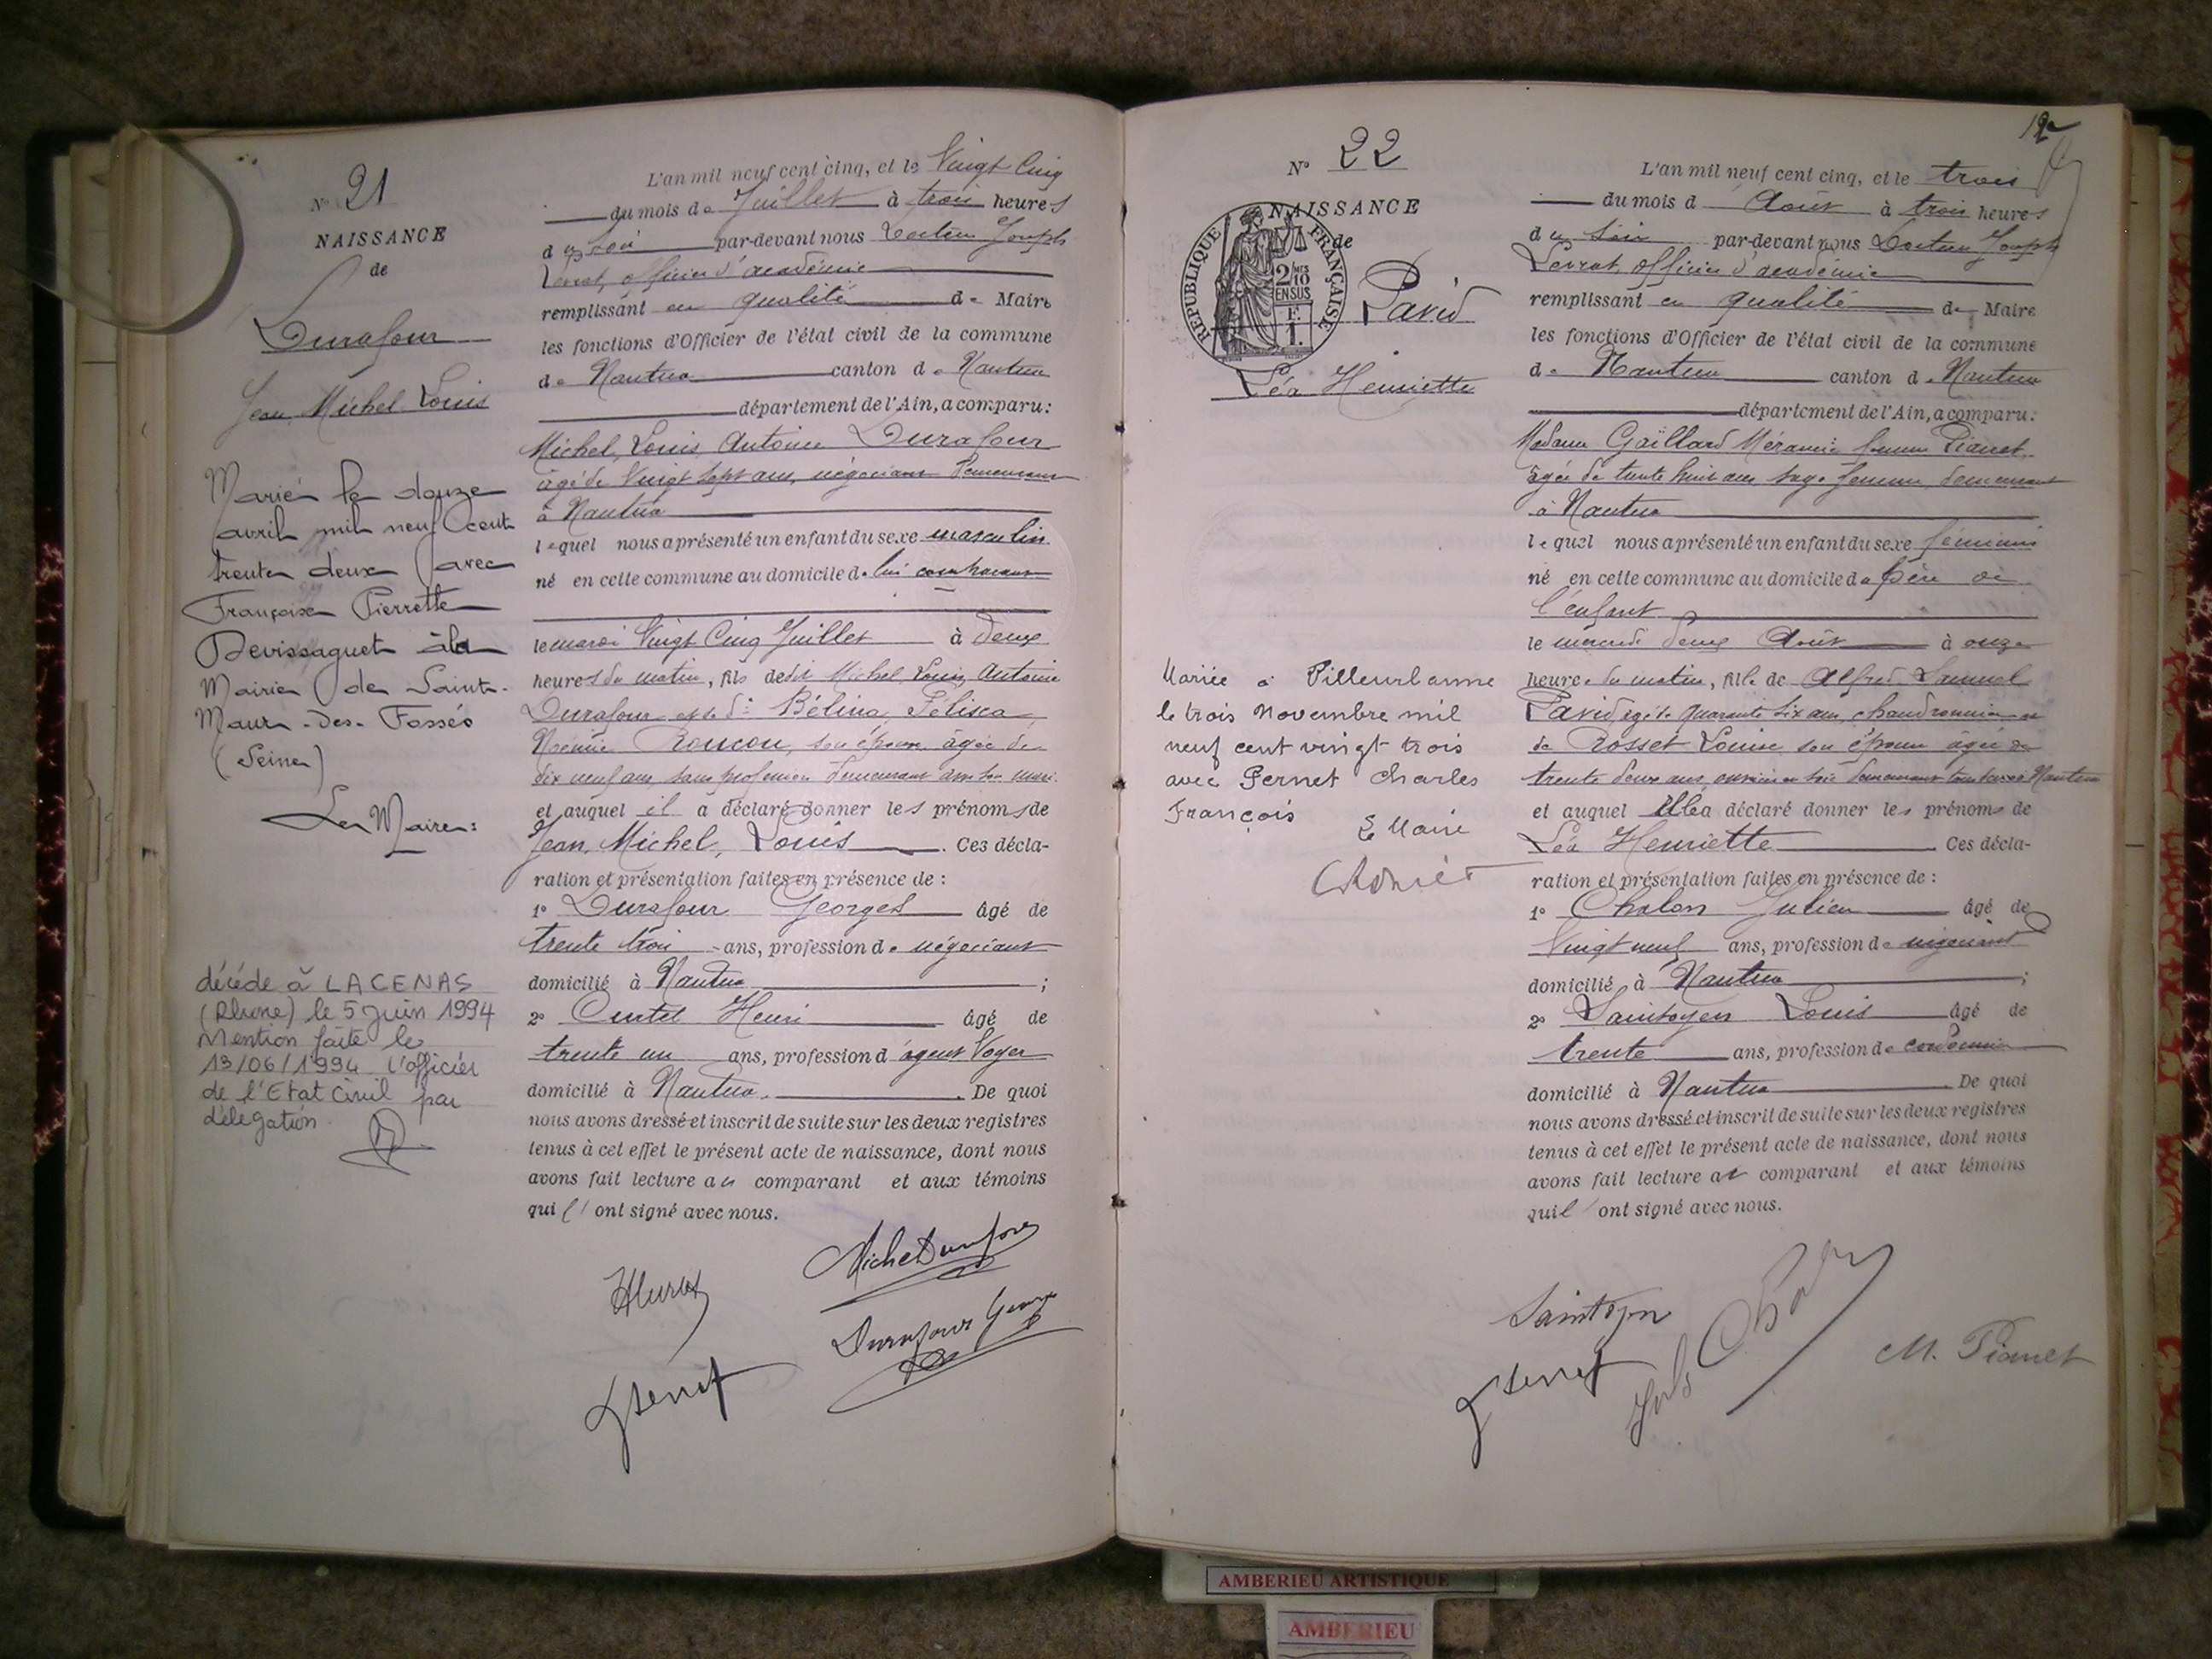 N° 21
NAISSANCE
de
Durafour
Jean Michel Louis
Marié le douze
avril mil neuf cent
trente deux avec
Françoise Pierrette
Devissaguet à la
Mairie de Saint-
Maur-des-Fossés
(Seine)
Le Maire:
décédé à LACENAS
(Rhône) le 5 Juin 1994
Mention faite le
13/06/1994 l'officier
de l'Etat Civil par
délégation.
L'an mil neuf cent cinq, et le Vingt Cinq
du mois de Juillet à trois heures
du soir par-devant nous Docteur Joseph
officier d'académie
remplissant en qualité de Maire
les fonctions d'Officier de l'état civil de la commune
de Nantua canton de Nantua
département de l'Ain, a comparu:
Michel, Louis, Antoine Durafour
âgé de Vingt Sept ans, négociant demeurant
à Nantua
lequel nous a présenté un enfant du sexe masculin
né en cette commune au domicile de lui comparant
le mardi Vingt Cinq Juillet à deux
heures du matin, fils de dit Michel, Louis, Antoine
Durafour et de De Bélina, Félisca,
Noémie Roncon, son épouse, âgée de
dix neuf ans, sans profession demeurant avec son mari
et auquel il a déclaré donner les prénoms de
Jean, Michel, Louis. Ces décla-
ration et présentation faites en présence de :
1° Durafour Georges âgé de
trente trois ans, profession de négociant
domicilié à Nantua ;
2° Curtet Henri âgé de
trente un ans, profession d'agent Voyer
domicilié à Nantua. De quoi
nous avons dressé et inscrit de suite sur les deux registres
tenus à cet effet le présent acte de naissance, dont nous
avons fait lecture au comparant et aux témoins
qui l'ont signé avec nous.
Michel Durafour
Durafour Georges
12
N° 22
NAISSANCE
de
RÉPUBLIQUE FRANÇAISE
2/10 EN SUS
F.
1.
David
Léa Henriette
Mariée à Villeurbanne
le trois Novembre mil
neuf cent vingt trois
avec Pernet Charles
François
Le Maire
L'an mil neuf cent cinq, et le trois
du mois d'Août à trois heures
du soir par-devant nous Docteur Joseph
officier d'académie
remplissant en qualité de Maire
les fonctions d'Officier de l'état civil de la commune
de Nantua canton de Nantua
département de l'Ain, a comparu:
Madame Gaillard femme Pianet
âgée de trente huit ans, sage femme, demeurant
à Nantua
lequel nous a présenté un enfant du sexe féminin
né en cette commune au domicile du père de
l'enfant
le mercredi deux Août à onze
heures du matin, fille de Alfred Samuel
David âgé de quarante six ans, chaudronnier et
de Rosset Louise son épouse âgée de
trente deux ans, demeurant tous deux à Nantua
et auquel Elle a déclaré donner les prénoms de
Léa Henriette Ces décla-
ration et présentation faites en présence de :
1° Chalon Julien âgé de
Vingt neuf ans, profession de négociant
domicilié à Nantua ;
2° Saintoyen Louis âgé de
trente ans, profession de cordonnier
domicilié à Nantua De quoi
nous avons dressé et inscrit de suite sur les deux registres
tenus à cet effet le présent acte de naissance, dont nous
avons fait lecture au comparant et aux témoins
qui l'ont signé avec nous.
M. Pianet
AMBERIEU ARTISTIQUE
AMBERIEU